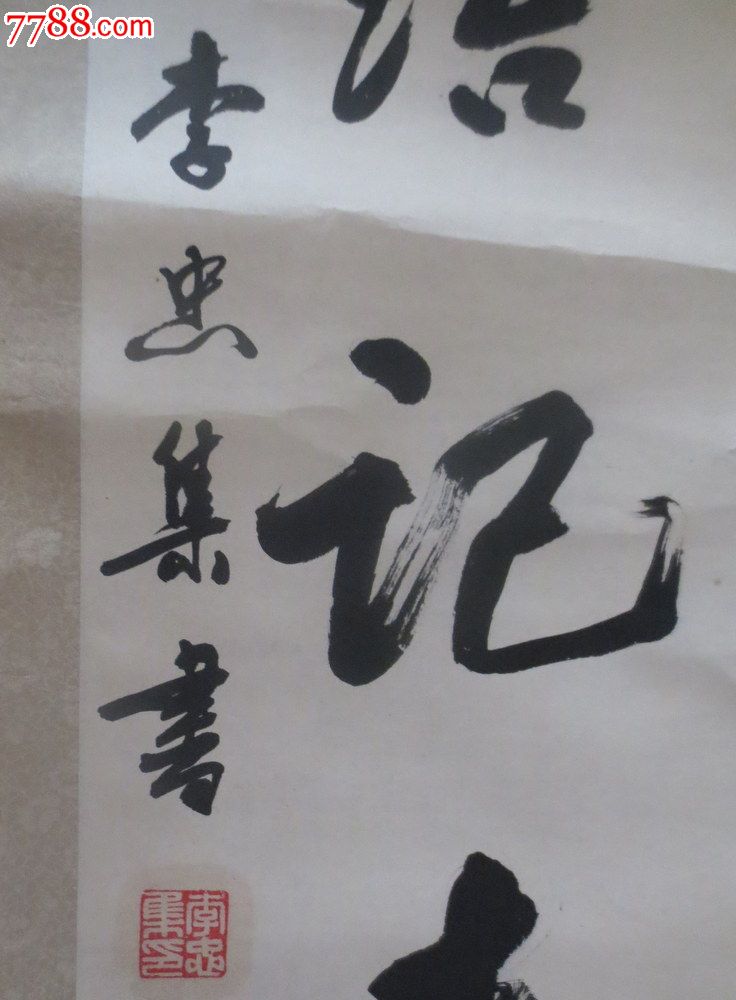 7788.com
记
李忠集書
李忠
集印